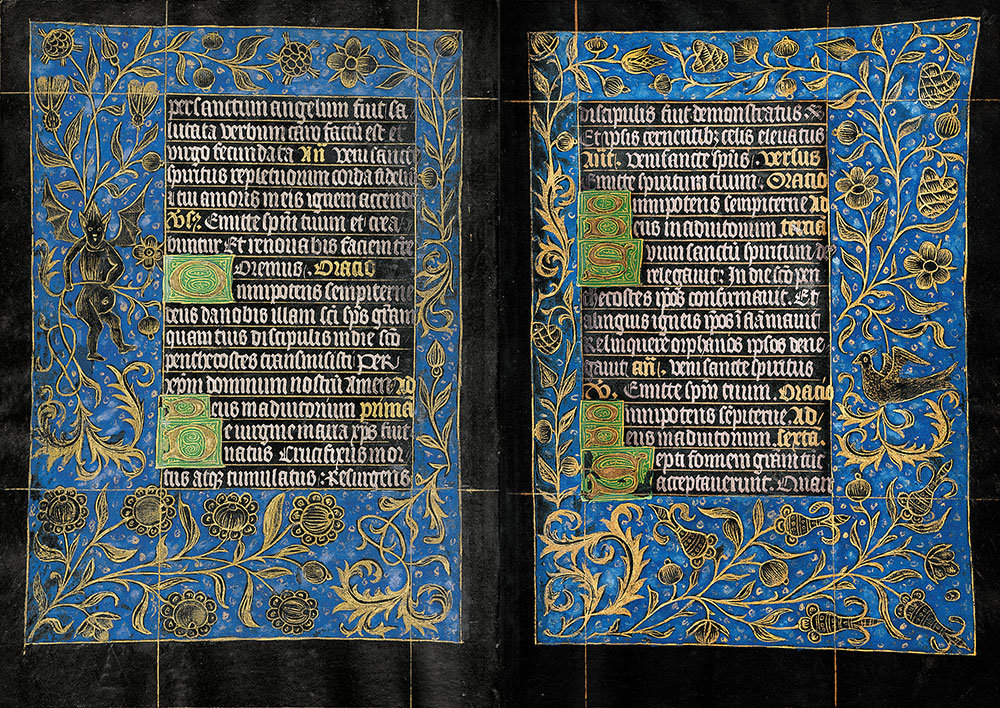 per sanctum angelum fiut sa
lutata verbum caro factū est et
virgo fecundata Añ veni sancte
spiritus repletuorum corda fideliū
tui amoris in eis ignem accende
Emitte spm̄ tuum et crea
buntur Et renovabis faciem tre
Oremus. Oracio
Omnipotens sempiterne
deus da nobis illam scī sps grām
quam tuis discipulis in die scō
penthecostes transmisisti Per
xpm̄ dominum nostrū Amen Ad
Deus in adiutorium prima
De virgine maria xps fuit
natus Crucifixus mor
tus atq tumulatus: Resurgens
discipulis fiut demonstratus
Et ipsis cernentib; celis elevatus
Ant. veni sancte spūs. versus
Emitte spiritum tuum. Oracio
Omnipotens sempiterne Ad
Deus in adiutorium tercia
Suum sanctū spiritum de
relegavit: In die scō pen
thecostes ip̄os confirmavit. Et
alinguis igneis ip̄os
Relinquere orphanos ipsos dene
gavit añ. veni sancte spiritus
Emitte spm̄ tuum. Oracio
Omnipotens sēpiterne Ad
Deus in adiutorium. sexta.
Septi formem grām tūc
acceptaverunt. Quare